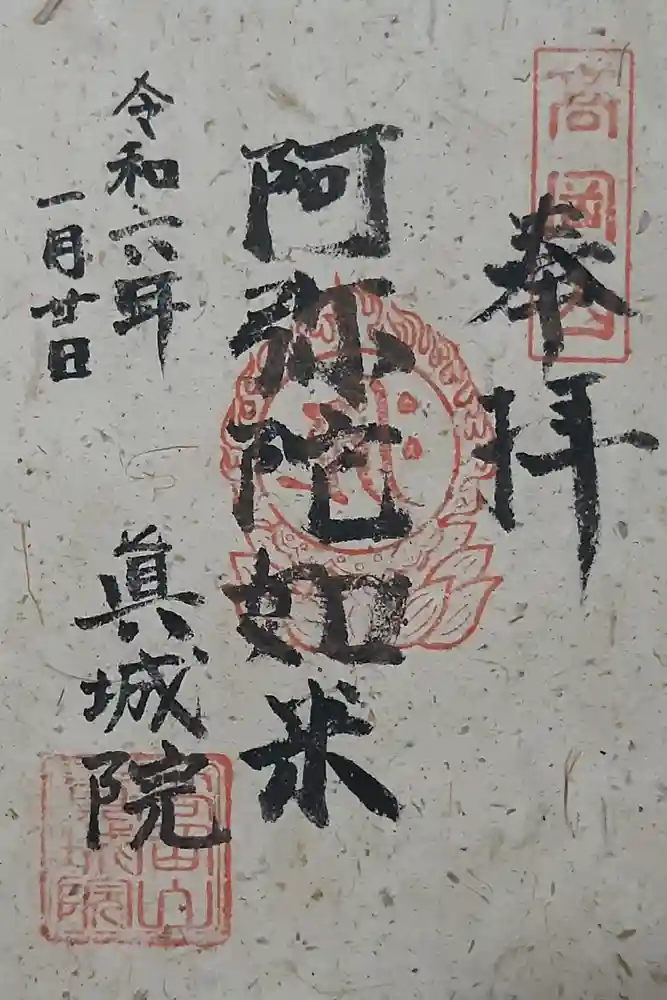 奉拝
阿弥陀如来
令和六年
一月廿日
眞城院